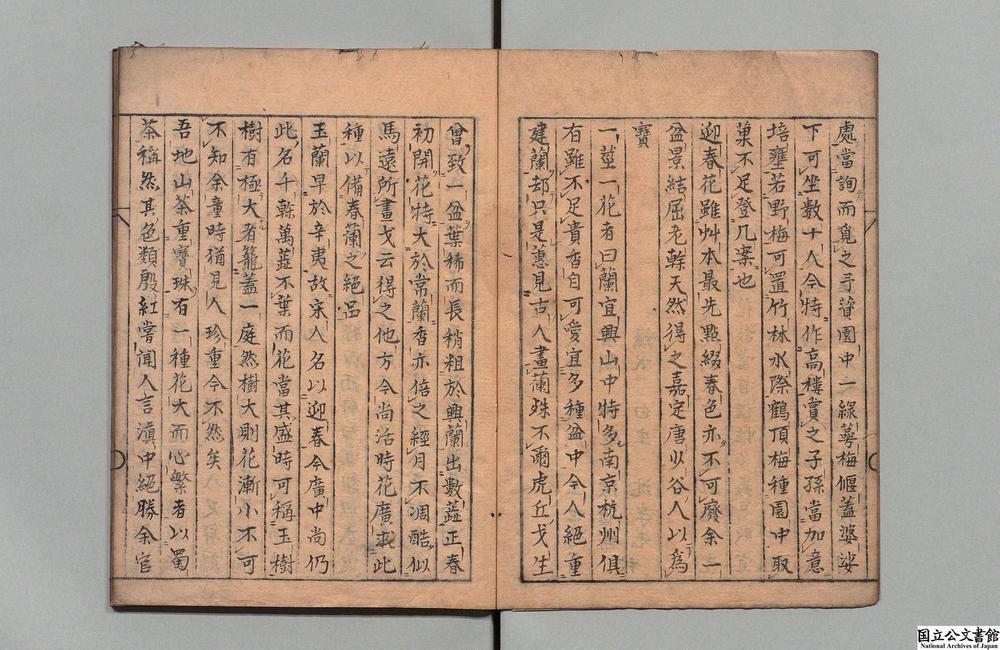 處當詢而覓之予簷園中一綠萼梅偃蓋婆娑
下可坐數十人今特作高樓賞之子孫當加意
培壅若野梅可置竹林水際鶴頂梅種園中取
菓不足登几案也
迎春花雖艸本最先點綴春色亦不可廢余一
盆景結屈老幹天然得之嘉定唐少谷人以爲
寶
一莖一花者曰蘭宜興山中特多南京杭州俱
有雖不足貴香自可愛宜多種盆中今人絕重
建蘭却只是蕙見古人畫蘭殊不爾虎丘戈生
曾致一盆葉稀而長稍粗於興蘭出數蕋正春
初開花特大於常蘭香亦倍之經月不凋酷似
馬遠所畫戈云得之他方今尚活時花廣求此
種以備春蘭之絕品
玉蘭早於辛夷故宋人名以迎春今廣中尚仍
此名千幹萬蕋不葉而花當其盛時可稱玉樹
樹有極大者籠蓋一庭然樹大則花漸小不可
不知余童時猶見人珍重今不然矣
吾地山茶重寶珠有一種花大而心繁者以蜀
茶稱然其色類殷紅嘗闻人言滇中絕勝余官
国立公文書館
National Archives of Japan